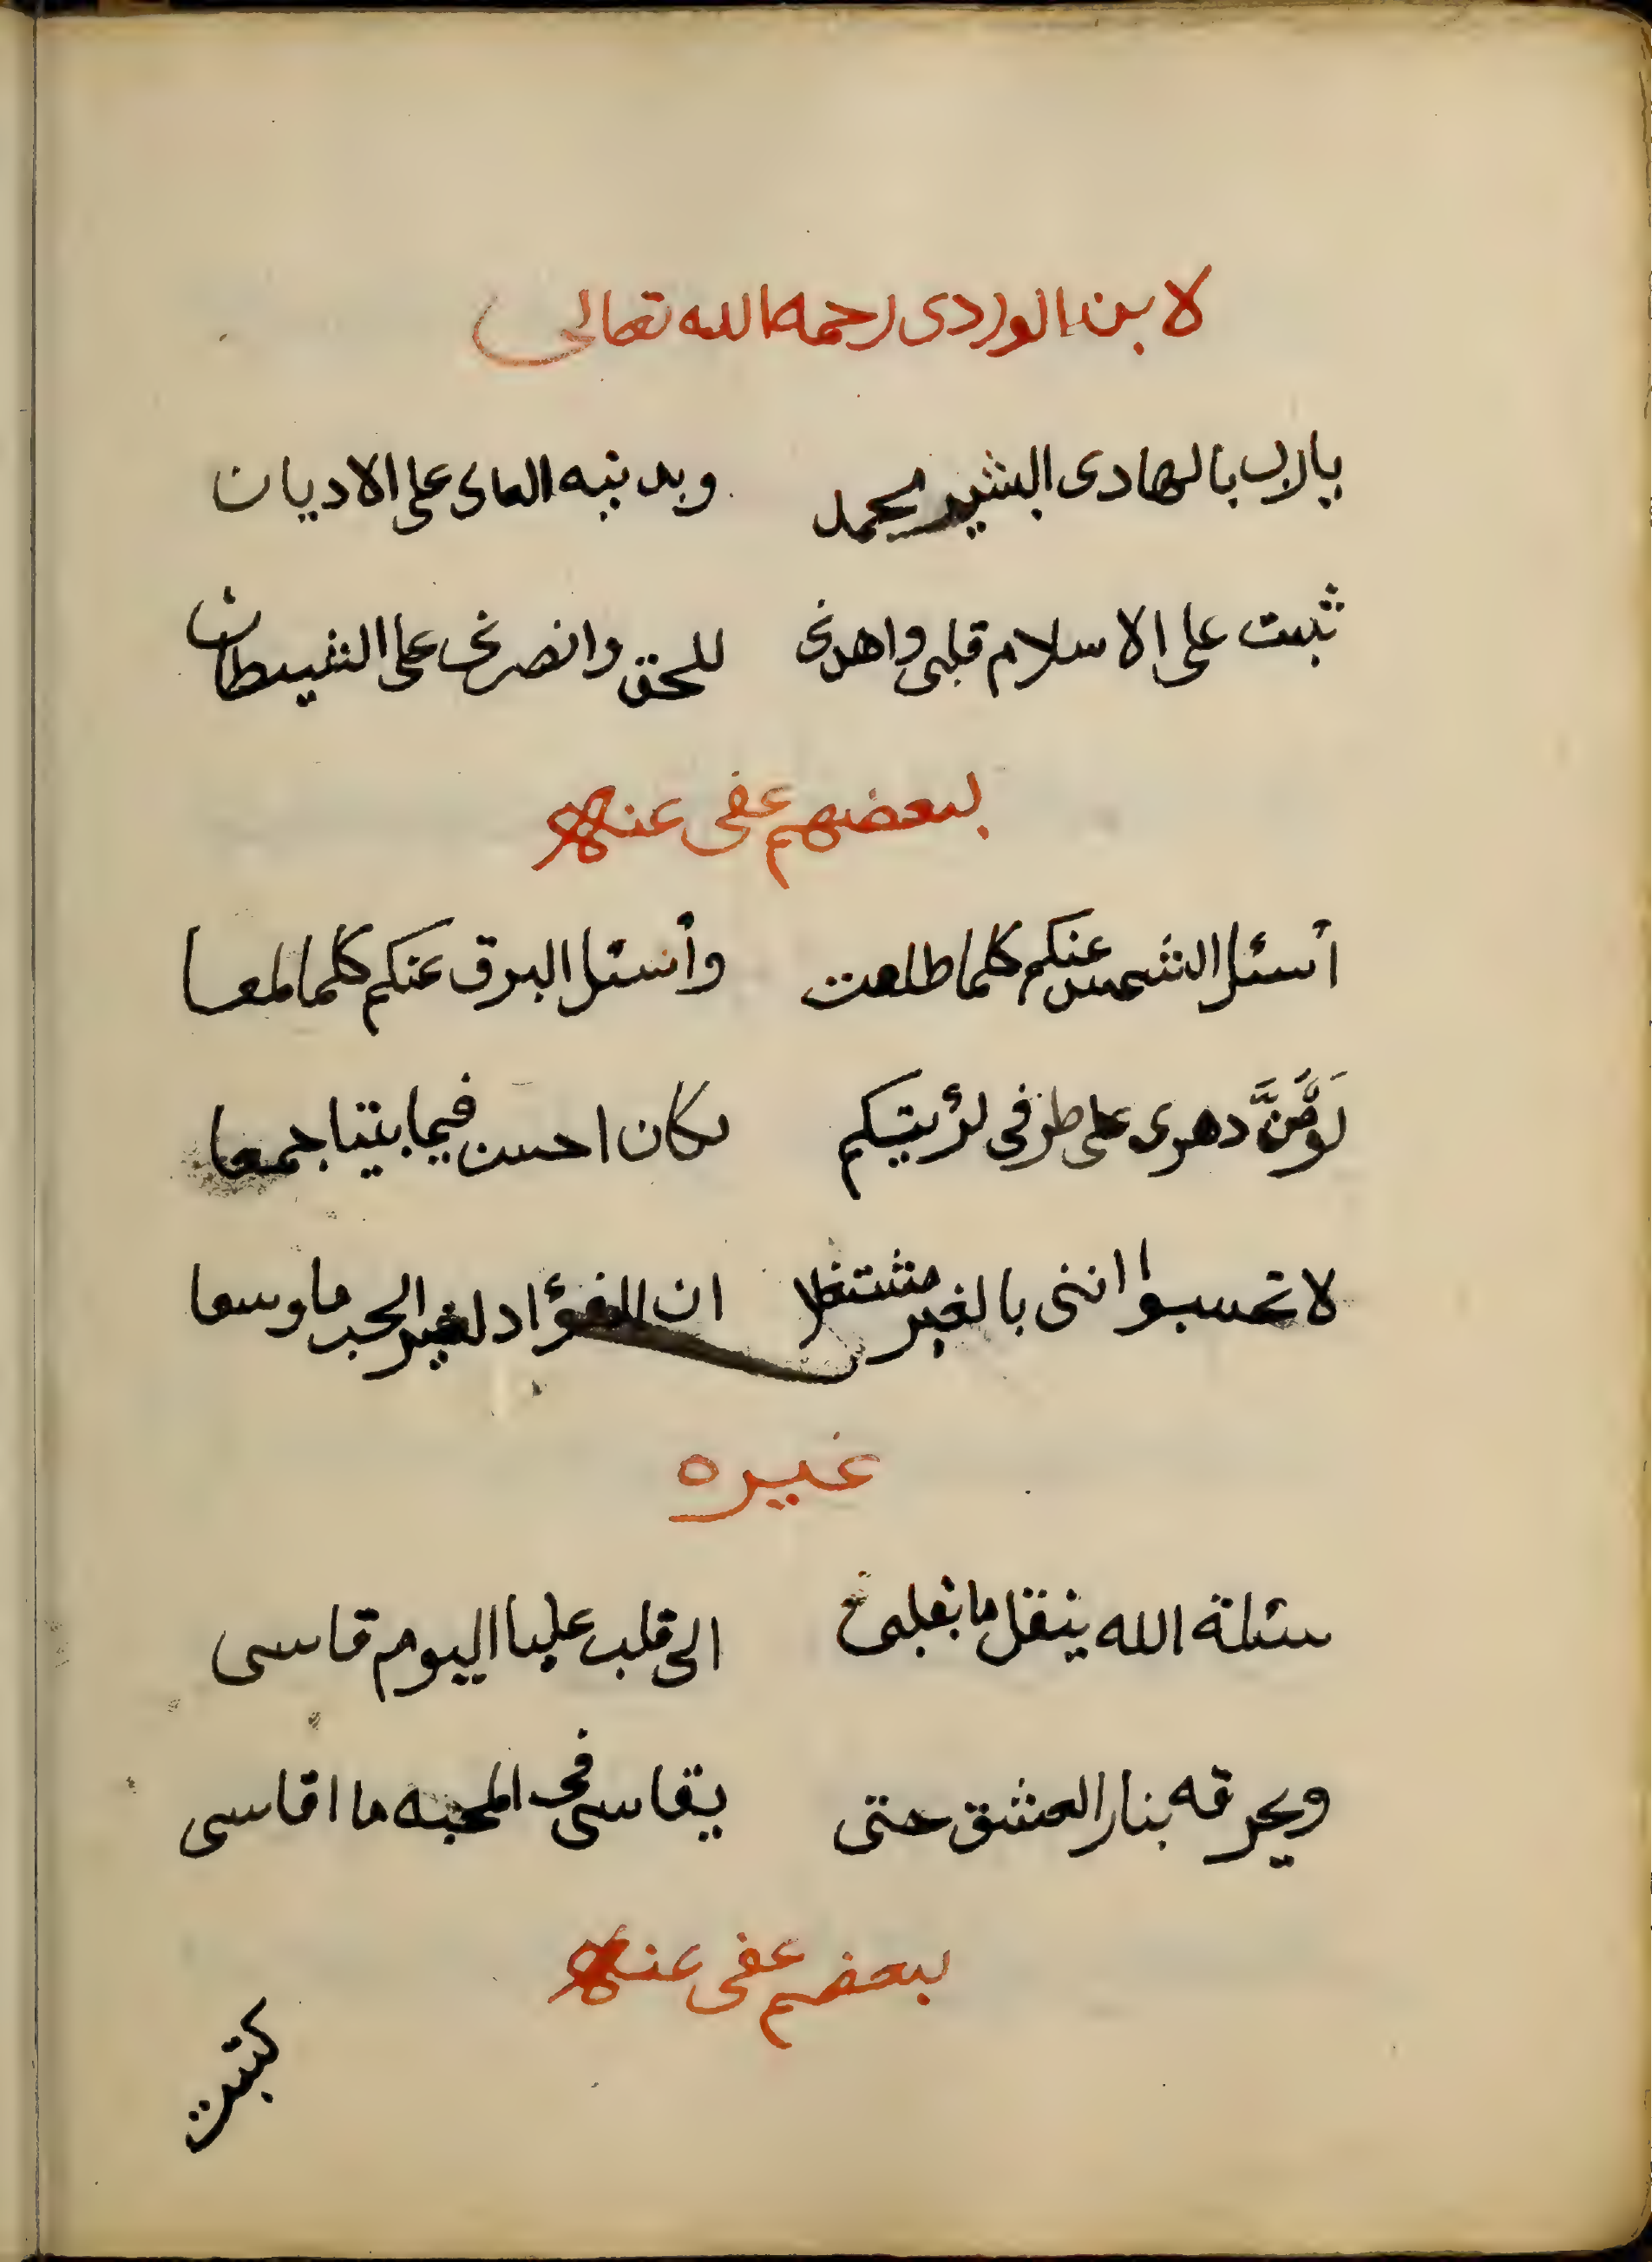 لابن الوردى رحمه الله تعالى
يارب بالهادى البشير محمد وبدينه العالى على الاديان
ثبت على الاسلام قلبى واهدنى للحق وانصرنى على الشيطان
لبعضهم عفى عنهم
أسئل الشمس عنكم كلما طلعت وأسئل البرق عنكم كلما لمعا
لَو مَنَّ دهرى على طرفى لرؤيتكم لكان احسن فيما بيننا جمعا
لا تحسبوا اننى بالغير مشتغلا ان الفؤاد لغير الحب ما وسعا
غيره
سئلة الله ينقل ما بقلبى الى قلب علينا اليوم قاسى
ويحرقه بنار العشق حتى يقاسى فى المحبه ما اقاسى
لبعضهم عفى عنهم
كتبت